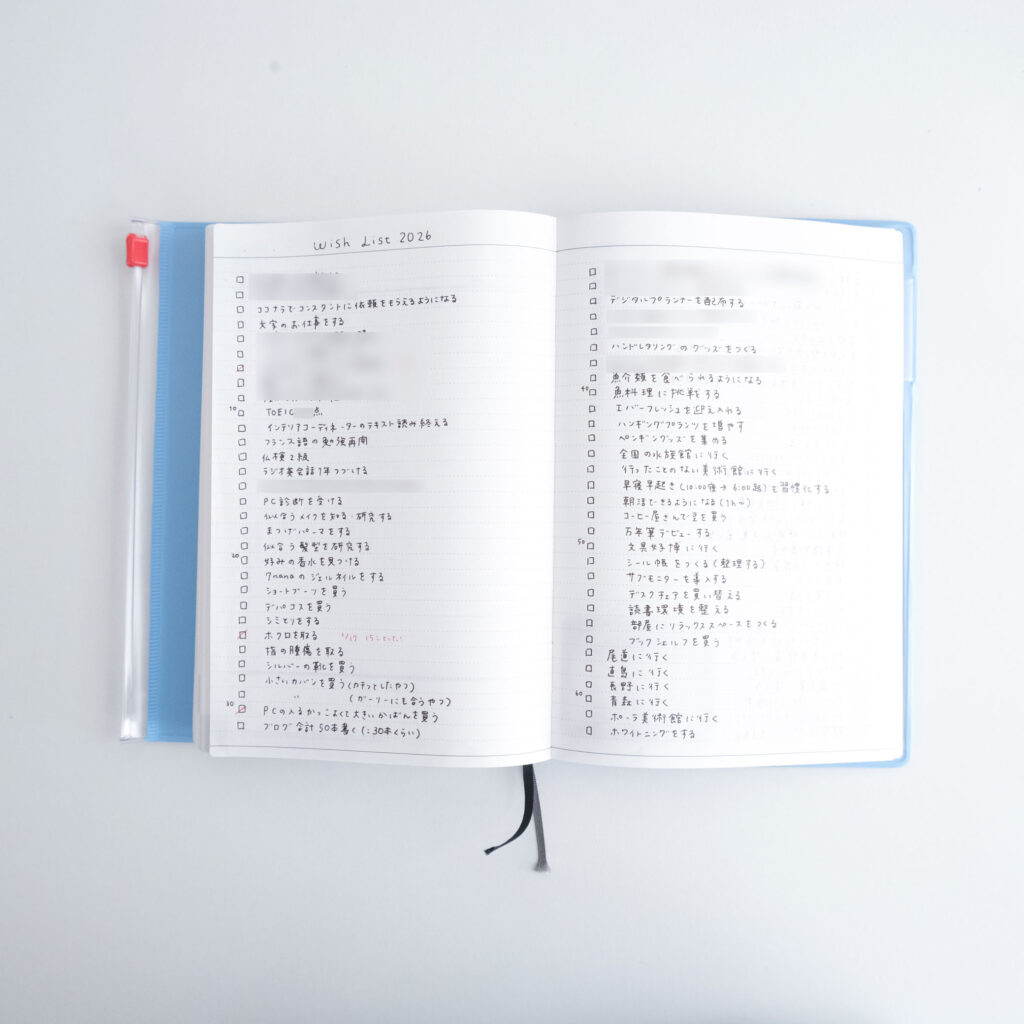 Wish List 2026
ココナラでコンスタントに依頼をもらえるようになる
文字のお仕事をする
10
TOEIC 点
インテリアコーディネーターのテキスト読み終える
フランス語の勉強再開
仏検2級
ラジオ英会話1年つづける
PC診断を受ける
似合うメイクを知る・研究する
まつげパーマをする
似合う髪型を研究する
20
好みの香水を見つける
のジェルネイルをする
ショートブーツを買う
デパコスを買う
シミとりをする
ホクロを取る 1/17
指の腫瘍を取る
シルバーの靴を買う
小さいカバンを買う(カチっとしたやつ)
〃 (ガーリーにも合うやつ)
30
PCの入るかっこよくて大きいかばんを買う
ブログ合計50本書く(+30本くらい)
デジタルプランナーを配布する
ハンドレタリングのグッズをつくる
魚介類を食べられるようになる
40
魚料理に挑戦する
エバーフレッシュを迎え入れる
ハンギングプランツを増やす
ペンギングッズを集める
全国の水族館に行く
行ったことのない美術館に行く
早寝早起き(10:00寝→6:00起)を習慣化する
朝活できるようになる(1h〜)
コーヒー屋さんで豆を買う
万年筆デビューする
50
文具女子博に行く
シール帳をつくる(整理する)
サブモニターを導入する
デスクチェアを買い替える
読書環境を整える
部屋にリラックススペースをつくる
ブックシェルフを買う
尾道に行く
直島に行く
長野に行く
60
青森に行く
ポーラ美術館に行く
ホワイトニングをする